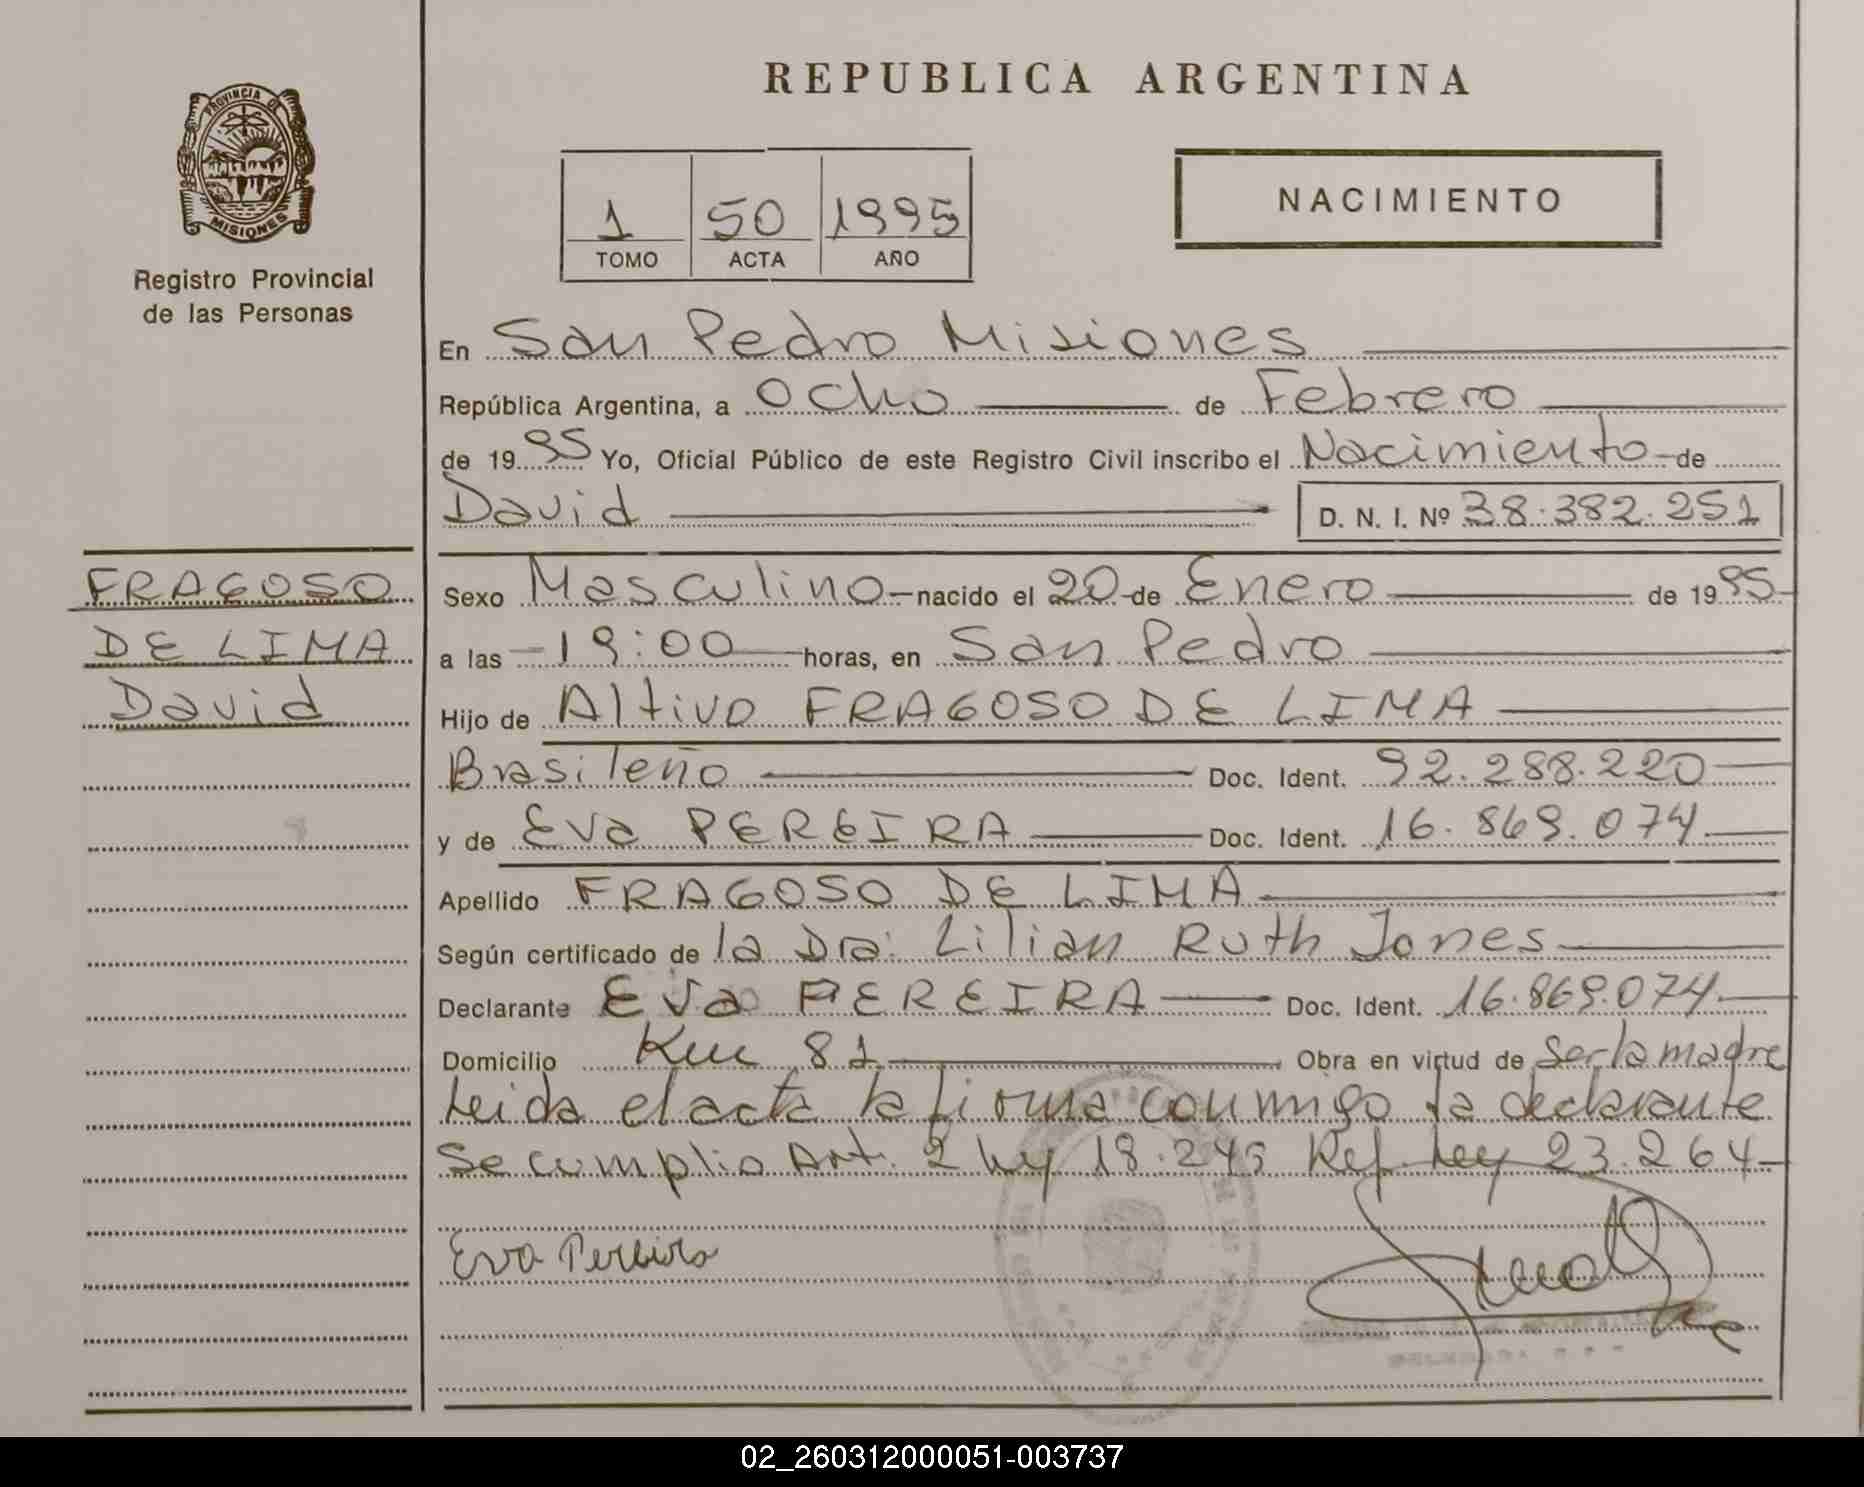 PROVINCIA DE
MISIONES
Registro Provincial
de las Personas
REPUBLICA ARGENTINA
1 50 1995
TOMO ACTA AÑO
NACIMIENTO
En San Pedro Misiones
República Argentina, a Ocho de Febrero
de 1995 Yo, Oficial Público de este Registro Civil inscribo el Nacimiento de
David D. N. I. Nº 38.382.251
FRAGOSO
DE LIMA
David
Sexo Masculino nacido el 20 de Enero de 1995
a las 19:00 horas, en San Pedro
Hijo de Altivo FRAGOSO DE LIMA
Brasileño Doc. Ident. 92.288.220
y de Eva PEREIRA Doc. Ident. 16.869.074
Apellido FRAGOSO DE LIMA
Según certificado de la Dra. Lilian Ruth Jones
Declarante Eva PEREIRA Doc. Ident. 16.869.074
Domicilio Km 81 Obra en virtud de ser la madre
Leida el acta la firma conmigo la declarante
Se cumplio Art. 2 Ley 18.248 Ref Ley 23.264
Eva Pereira
02_260312000051-003737